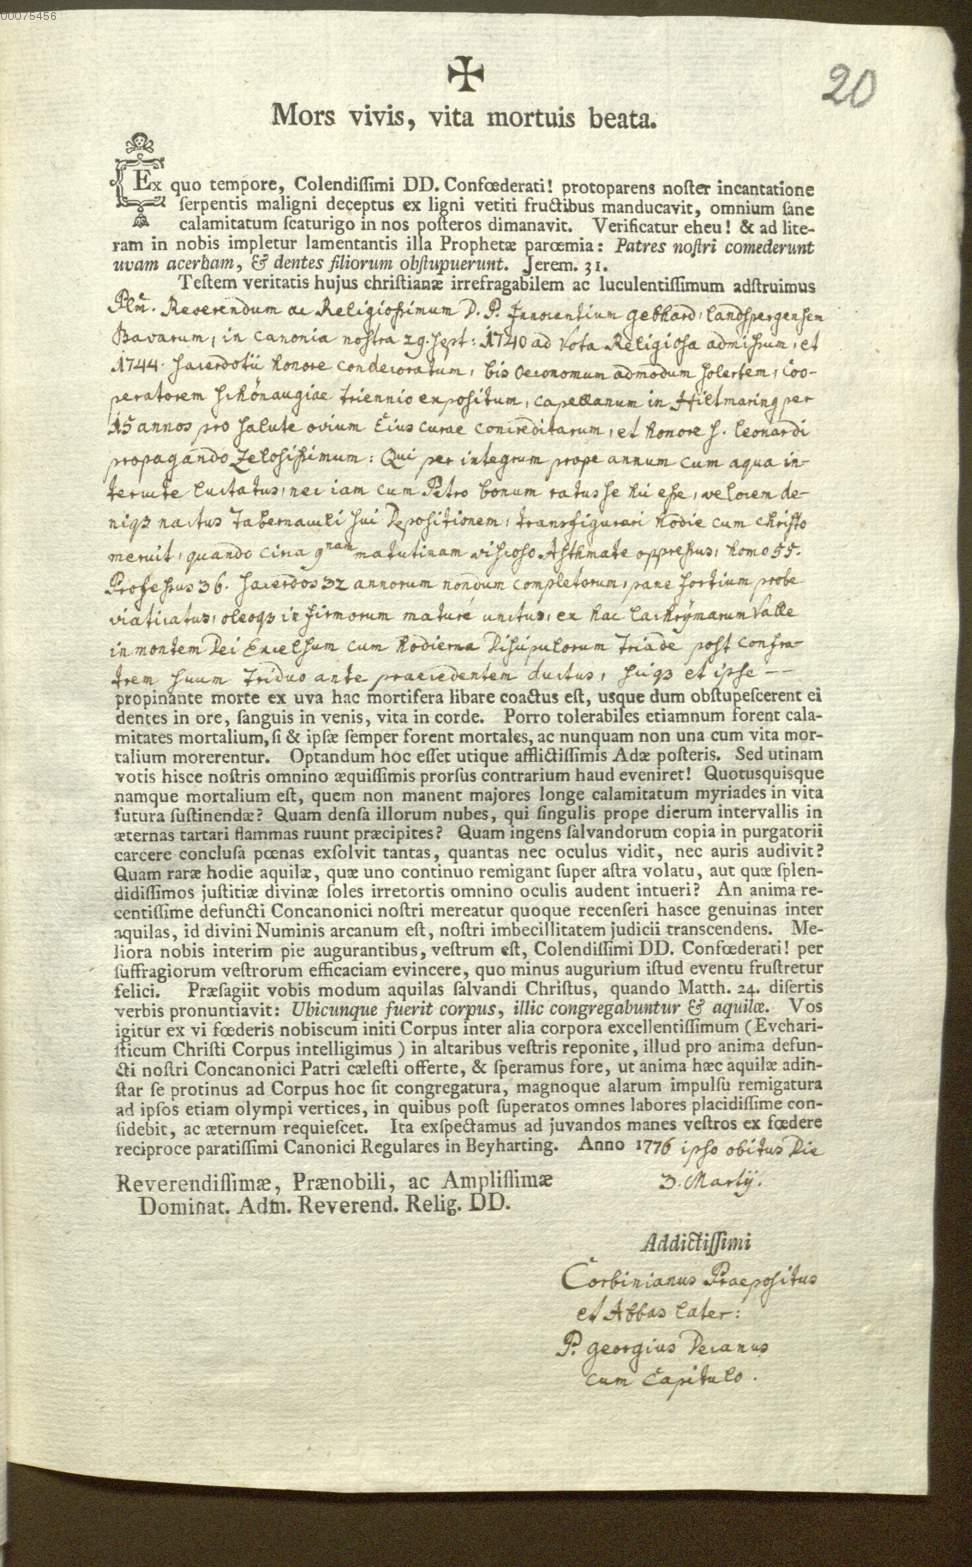 00075456
20
Mors vivis, vita mortuis beata.
Ex quo tempore, Colendissimi DD. Confœderati! protoparens noster incantatione
serpentis maligni deceptus ex ligni vetiti fructibus manducavit, omnium sane
calamitatum scaturigo in nos posteros dimanavit. Verificatur eheu! & ad lite-
ram in nobis impletur lamentantis illa Prophetæ parœmia: Patres nostri comederunt
uvam acerbam, & dentes filiorum obstupuerunt. Jerem. 31.
Testem veritatis hujus christianæ irrefragabilem ac luculentissimum adstruimus
Plm̃. Reverendum ac Religiosissimum D. P. Innocentium Gebhard, landspergensem
Bavarum, in canonia nostra 29. Sept: 1740 ad Vota Religiosa admissum, et
1744. Sacerdotii honore condecoratum, bis Oeconomum admodum solertem, Coo-
peratorem Schönaugiae triennio expositum, capellanum in Hiltmaring per
15 annos pro salute ovium Eius curae concreditarum, et honore S. Leonardi
propagando Zelosissimum: Qui per integrum prope annum cum aqua in-
tercute luctatus, nec iam cum Petro bonum ratus se hic esse, velocem de-
niq3 nactus Tabernaculi sui Depositionem, transfigurari hodie cum Christo
meruit, quando circa 9nam matutinam viscoso Asthmate oppressus, homo 55.
Professus 36. Sacerdos 32 annorum nondum completorum, pane fortium probe
viaticatus, oleoq3 infirmorum mature unctus, ex hac lachrymarum Valle
in montem Dei Excelsum cum hodierna Discipulorum Triade post confra-
trem suum triduo ante praecedentem ductus, sicq3 et ipse - -
propinante morte ex uva hac mortifera libare coactus est, usque dum obstupescerent ei
dentes in ore, sanguis in venis, vita in corde. Porro tolerabiles etiamnum forent cala-
mitates mortalium, si & ipsæ semper forent mortales, ac nunquam non una cum vita mor-
talium morerentur. Optandum hoc esset utique afflictissimis Adæ posteris. Sed utinam
votis hisce nostris omnino æquissimis prorsus contrarium haud eveniret! Quotusquisque
namque mortalium est, quem non manent majores longe calamitatum myriades in vita
futura sustinendæ? Quam densa illorum nubes, qui singulis prope dierum intervallis in
æternas tartari flammas ruunt præcipites? Quam ingens salvandorum copia in purgatorii
carcere conclusa pœnas exsolvit tantas, quantas nec oculus vidit, nec auris audivit?
Quam raræ hodie aquilæ, quæ uno continuo remigant super astra volatu, aut quæ splen-
didissimos justitiæ divinæ soles irretortis omnino oculis audent intueri? An anima re-
centissime defuncti Concanonici nostri mereatur quoque recenseri hasce genuinas inter
aquilas, id divini Numinis arcanum est, nostri imbecillitatem judicii transcendens. Me-
liora nobis interim pie augurantibus, vestrum est, Colendissimi DD. Confœderati! per
suffragiorum vestrorum efficaciam evincere, quo minus augurium istud eventu frustretur
felici. Præsagiit vobis modum aquilas salvandi Christus, quando Matth. 24. disertis
verbis pronuntiavit: Ubicunque fuerit corpus, illic congregabuntur & aquilæ. Vos
igitur ex vi fœderis nobiscum initi Corpus inter alia corpora excellentissimum (Evchari-
sticum Christi Corpus intelligimus) in altaribus vestris reponite, illud pro anima defun-
cti nostri Concanonici Patri cælesti offerte, & speramus fore, ut anima hæc aquilæ adin-
star se protinus ad Corpus hoc sit congregatura, magnoque alarum impulsu remigatura
ad ipsos etiam olympi vertices, in quibus post superatos omnes labores placidissime con-
sidebit, ac æternum requiescet. Ita exspectamus ad juvandos manes vestros ex fœdere
reciproce paratissimi Canonici Regulares in Beyharting. Anno 1776 ipso obitus Die
3. Martij.
Reverendissimæ, Prænobili, ac Amplissimæ
Dominat. Adm. Reverend. Relig. DD.
Addictissimi
Corbinianus Praepositus
et Abbas Later:
P. Georgius Decanus
cum Capitulo.